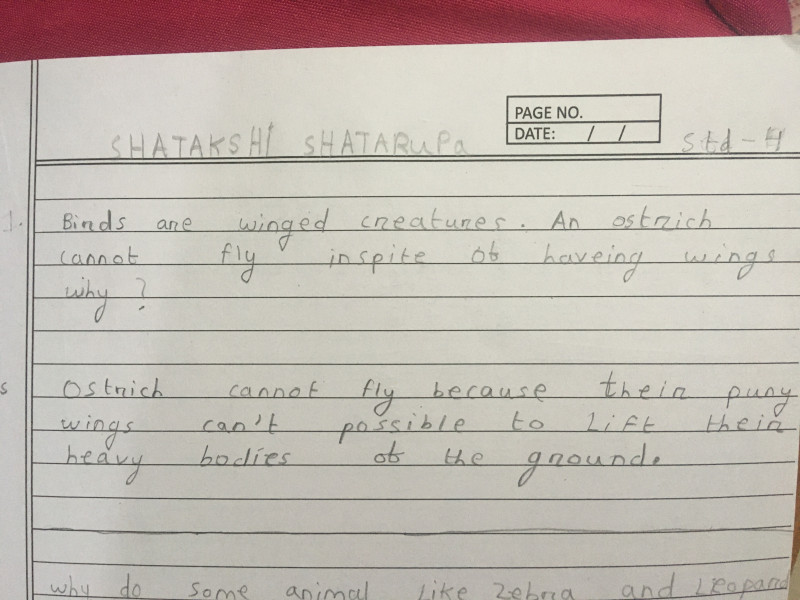 PAGE NO.
DATE: / /
SHATAKSHI SHATARUPa Std-4
1. Birds are winged creatures. An ostrich
cannot fly inspite of haveing wings
why?
s Ostrich cannot fly because their puny
wings can't possible to Lift their
heavy bodies of the ground.
why do some animal Like Zebra and Leopard